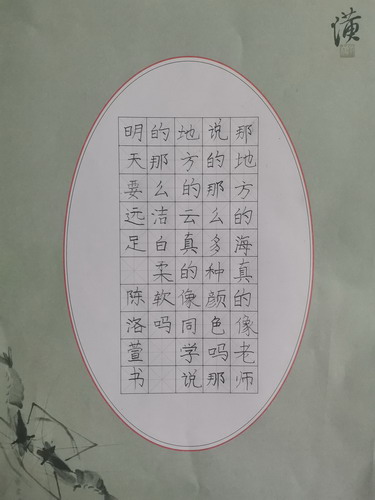 那地方的海真的像老师
说的那么多种颜色吗那
地方的云真的像同学说
的那么洁白柔软吗
明天要远足
陈洛萱书